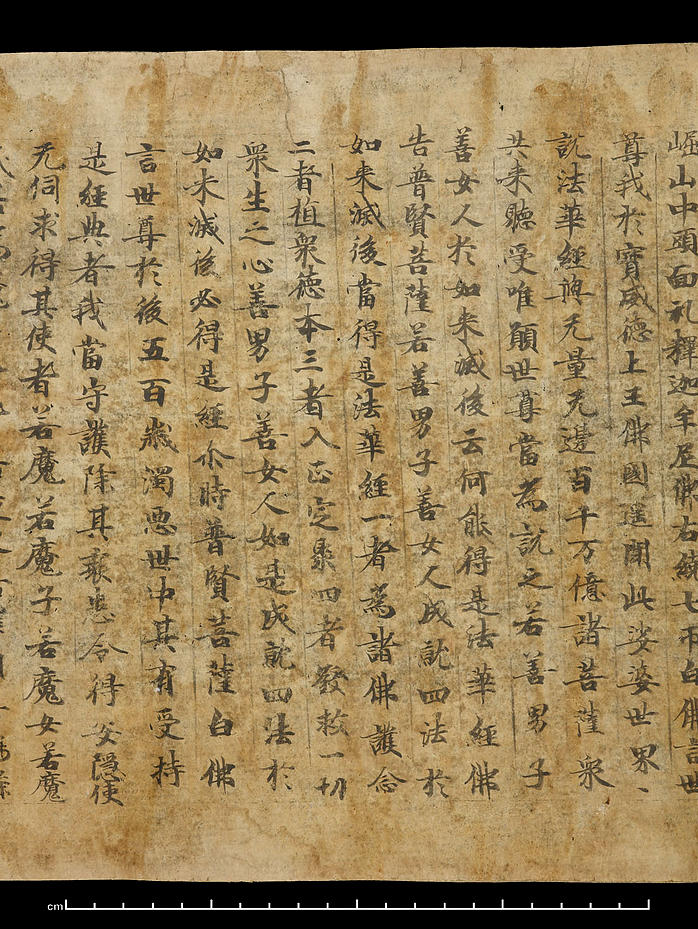 崛山中頭面礼釋迦牟尼佛右繞七帀白佛言世
尊我於寳威德上王佛國遥聞此娑婆世界、
說法華經與无量无邊百千万億諸菩薩衆
共来聽受唯願世尊當為說之若善男子
善女人於如来滅後云何能得是法華經佛
告普賢菩薩若善男子善女人成就四法於
如来滅後當得是法華經一者為諸佛護念
二者植衆德本三者入正定聚四者發救一切
衆生之心善男子善女人如是成就四法於
如来滅後必得是經尒時普賢菩薩白佛
言世尊於後五百歲濁惡世中其有受持
是經典者我當守護除其衰患令得安隱使
无伺求得其便者若魔若魔子若魔女若魔
cm